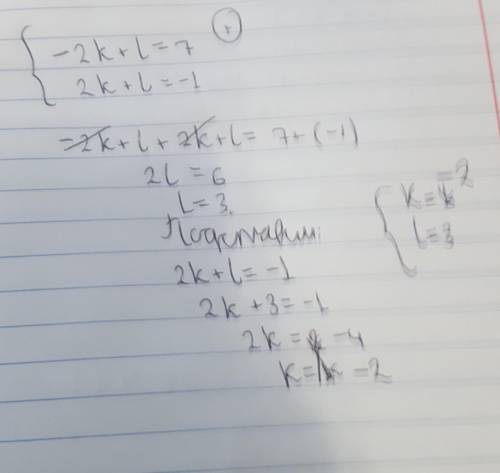 (+)
{ -2k + l = 7
2k + l = -1
-2k + l + 2k + l = 7 + (-1)
2l = 6
l = 3.
Подставим:
2k + l = -1
2k + 3 = -1
2k = -4
k = -2
{ k = -2
l = 3